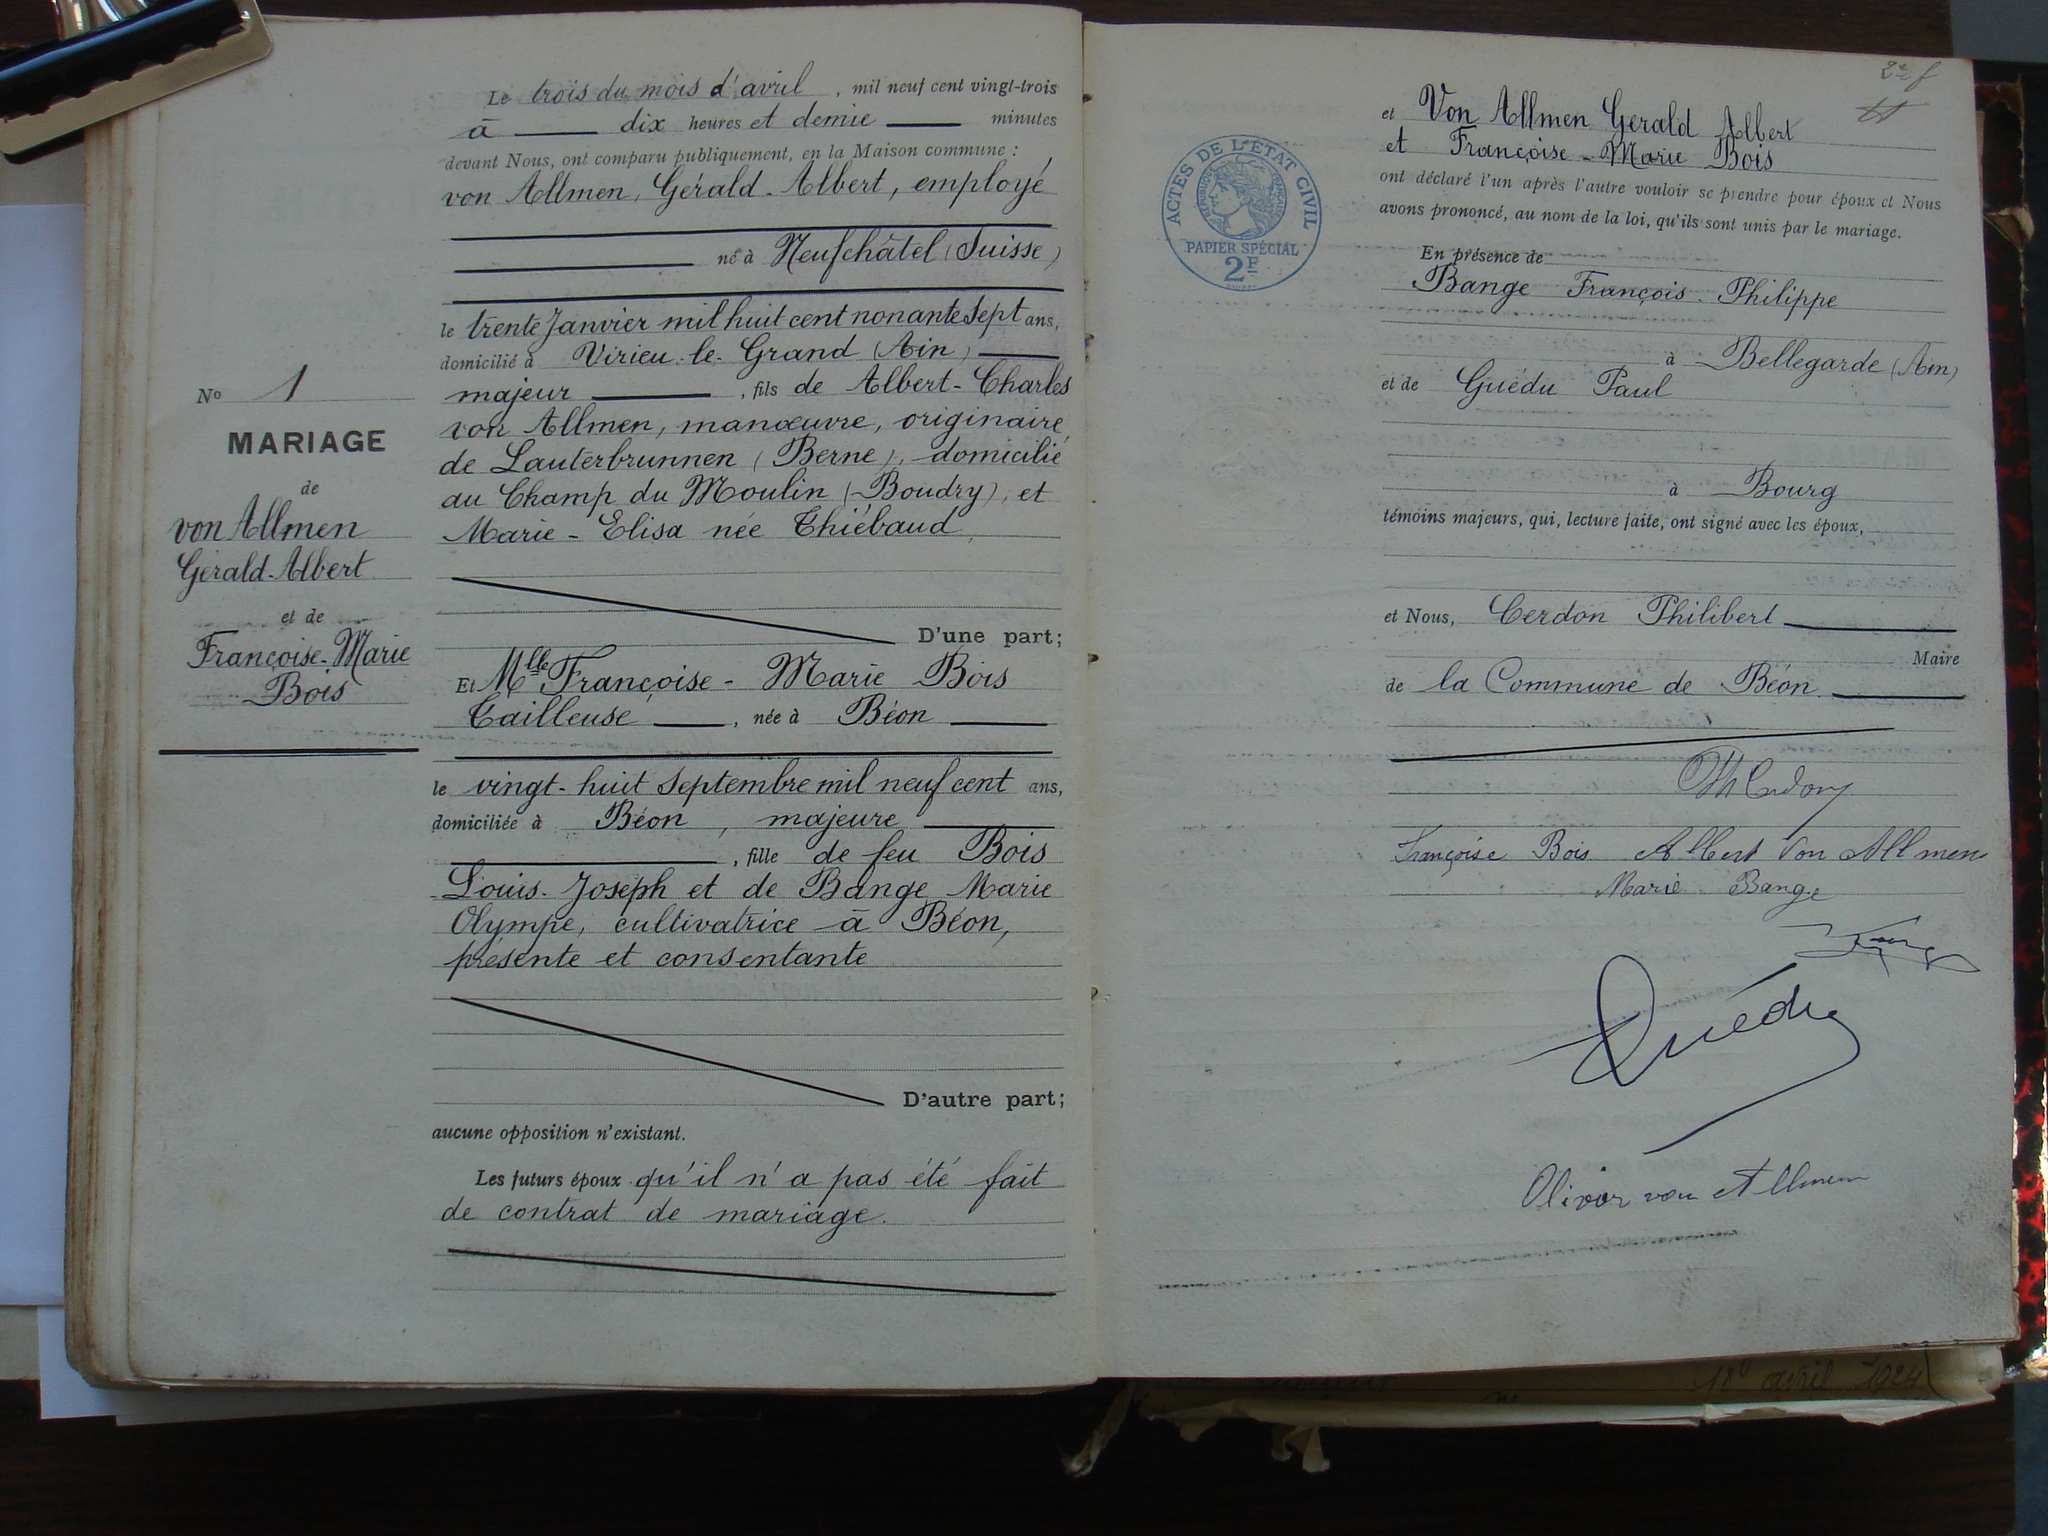 Le trois du mois d'avril, mil neuf cent vingt-trois
à dix heures et demie minutes
devant Nous, ont comparu publiquement, en la Maison commune :
von Allmen, Gérald-Albert, employé
né à Neufchâtel (Suisse)
le trente Janvier mil huit cent nonante sept ans,
domicilié à Virieu-le-Grand (Ain)
majeur, fils de Albert-Charles
von Allmen, manœuvre, originaire
de Lauterbrunnen (Berne), domicilié
au Champ du Moulin (Boudry), et
Marie-Elisa née Thiébaud,
D'une part;
Et Mlle Françoise-Marie Bois
Tailleuse, née à Béon
le vingt-huit Septembre mil neuf cent ans,
domiciliée à Béon, majeure
, fille de feu Bois
Louis-Joseph et de Bange Marie
Olympe, cultivatrice à Béon,
présente et consentante
D'autre part;
aucune opposition n'existant.
Les futurs époux qu'il n'a pas été fait
de contrat de mariage.
No 1
MARIAGE
de
von Allmen
Gérald-Albert
et de
Françoise-Marie
Bois
et Von Allmen Gerald Albert
et Françoise-Marie Bois
ont déclaré l'un après l'autre vouloir se prendre pour époux et Nous
avons prononcé, au nom de la loi, qu'ils sont unis par le mariage.
En présence de
Bange François-Philippe
à Bellegarde (Ain)
et de Guédu Paul
à Bourg
témoins majeurs, qui, lecture faite, ont signé avec les époux,
et Nous, Cerdon Philibert
Maire
de la Commune de Béon
Ph Cerdon
Françoise Bois Albert Von Allmen
Marie Bange
Guédu
Olivier von Allmen
ACTES DE L'ETAT CIVIL
RÉPUBLIQUE FRANÇAISE
PAPIER SPÉCIAL
2F
18 avril 1924